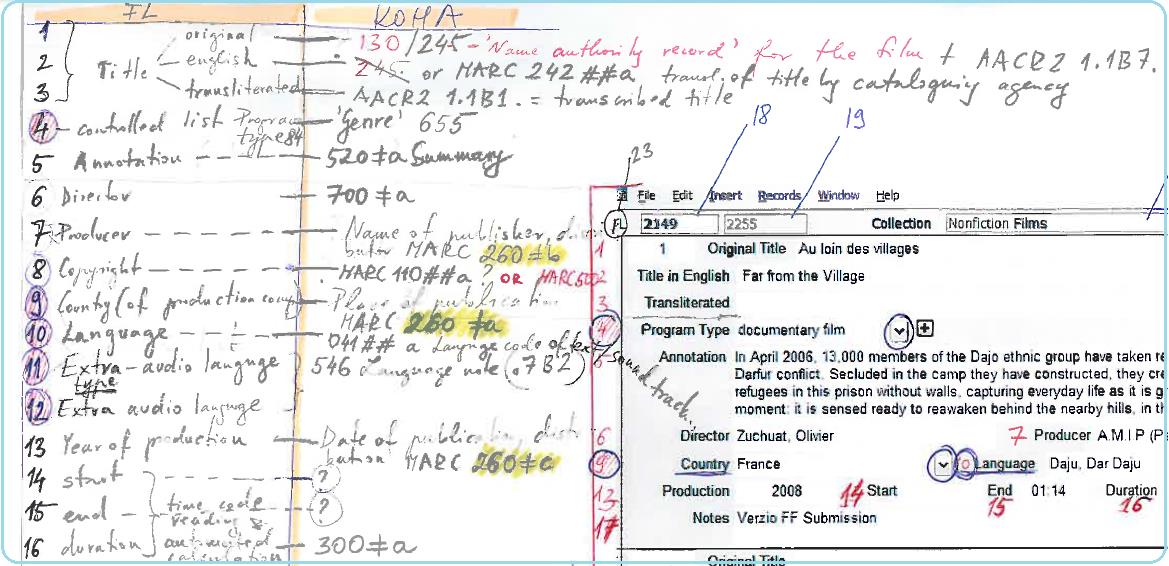 FL KOHA
1 original 130/245 - 'Name authority record' for the film + AACR2 1.1B7.
2 Title english 245. or MARC 242 ##a transl. of title by cataloguing agency
3 transliterated AACR2 1.1B1. = transcribed title
4 - controlled list Program type 84 'Genre' 655
5 Annotation 520 ‡a Summary
6 Director 700 ‡a
7 Producer Name of publisher, distri
butor MARC 260 ‡b
8 Copyright MARC 110##a ? OR MARC
9 Country (of production Place of publication
MARC 260 ‡a
10 Language 041## a Language code of text/sound track...
11 Extra-audio language 546 Language note (.7B2)
type
12 Extra audio language
13 Year of production Date of publication, distri
bution MARC 260 ‡c
14 start ?
15 end time code reading ?
16 duration automated calculation 300 ‡a
18 19
23
File Edit Insert Records Window Help
FL 2149 2255 Collection Nonfiction Films
1 1 Original Title Au loin des villages
2 Title in English Far from the Village
3 Transliterated
4 Program Type documentary film
Annotation In April 2006, 13,000 members of the Dajo ethnic group have taken re
Darfur conflict. Secluded in the camp they have constructed, they cre
refugees in this prison without walls, capturing everyday life as it is g
moment: it is sensed ready to reawaken behind the nearby hills, in th
6 Director Zuchuat, Olivier 7 Producer A.M.I.P (P
9 Country France Language Daju, Dar Daju
13 Production 2008 14 Start End 01:14 Duration
15 16
17 Notes Verzio FF Submission
Original Title